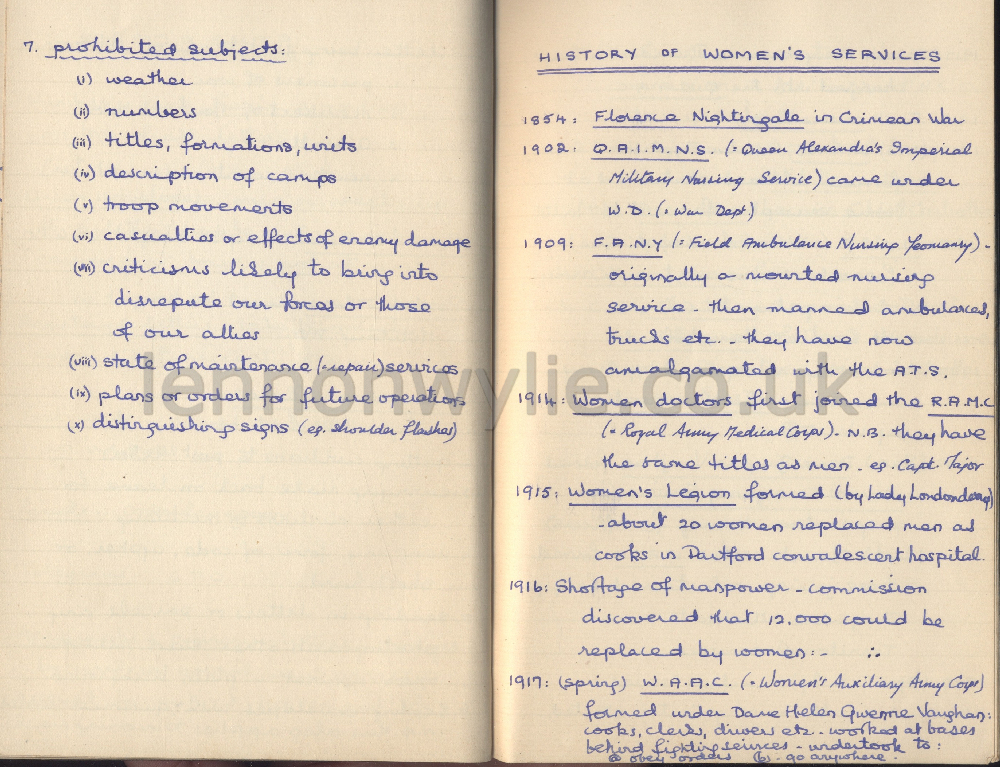 7. prohibited subjects:
(i) weather
(ii) numbers
(iii) titles, formations, units
(iv) description of camps
(v) troop movements
(vi) casualties or effects of enemy damage
(vii) criticisms likely to bring into
disrepute our forces or those
of our allies
(viii) state of maintenance (=repair) services
(ix) plans or orders for future operations
(x) distinguishing signs (eg. shoulder flashes)
HISTORY OF WOMEN'S SERVICES
1854: Florence Nightingale in Crimean War
1902: Q.A.I.M.N.S. (= Queen Alexandra's Imperial
Military Nursing Service) came under
W.D. (= War Dept)
1909: F.A.N.Y (= Field Ambulance Nursing Yeomanry) -
originally a mounted nursing
service - then manned ambulances,
trucks etc. - they have now
amalgamated with the A.T.S.
1914: Women doctors first joined the R.A.M.C
(= Royal Army Medical Corps). N.B. they have
the same titles as men - eg. Capt. Major
1915: Women's Legion formed (by Lady Londonderry)
- about 20 women replaced men as
cooks in Dartford convalescent hospital.
1916: Shortage of manpower - commission
discovered that 12,000 could be
replaced by women:- ∴
1917: (spring) W.A.A.C. (= Women's Auxiliary Army Corps)
formed under Dame Helen Gwenne Vaughan:
cooks, clerks, drivers etc. - worked at bases
behind fighting services - undertook to:
(a) obey orders (b) - go anywhere.
lennonwylie.co.uk